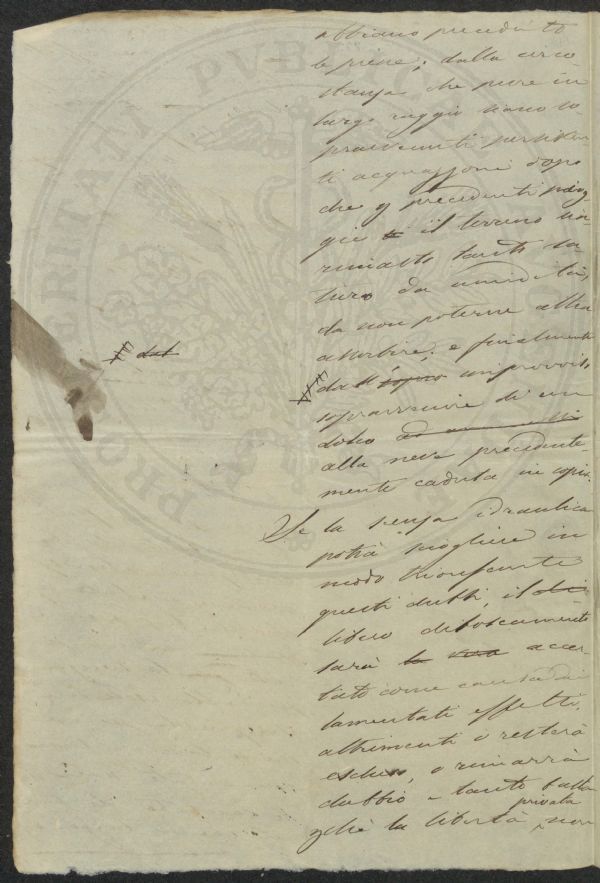 abbiano preceduto
le piene; dalla circo
stanza che pure in
largo raggio siano so
pravvenuti persisten
ti acquazzoni dopo
che p precedenti piog
gie il terreno sia
rimasto tanto sa
turo da umidità,
da non poterne altra
assorbire; e finalmente
dall' improvviso
sopravvenire di un
dolco
alla neve precedente-
mente caduta in copia.
Se la scienza idraulica
potrà sciogliere in
modo trionfante
questi dubbi, il
libero diboscamento
sarà accer-
tato come causa di
lamentati effetti,
altrimenti o resterà
escluso, o rimarrà
dubbio e tanto basta
perchè la libertà privata non
dal
PROSPERITATI PVBLICAE